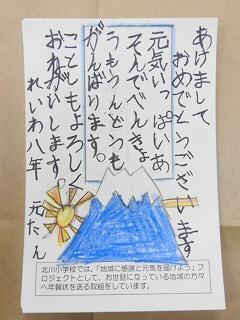 あけまして
おめでとうございます
元気いっぱいあ
そんでべんきょ
うもうんどうも
がんばります。
ことしもよろしく
おねがいします。
れいわ八年 元たん
北川小学校では、「地域に感謝と元気を届けよう」プ
ロジェクトとして、お世話になっている地域の方々
へ年賀状を送る取組をしています。